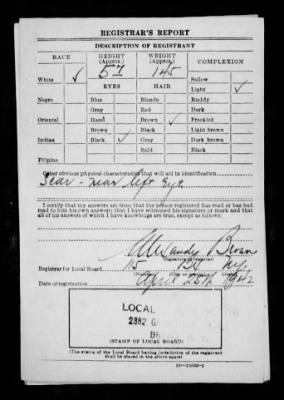 REGISTRAR'S REPORT
DESCRIPTION OF REGISTRANT
RACE HEIGHT (Approx.) WEIGHT (Approx.) COMPLEXION
145 Sallow
White ✓ EYES HAIR Light ✓
Negro Blue Blonde Ruddy
Gray Red Dark
Oriental Hazel Brown ✓ Freckled
Brown Black Light brown
Indian Black ✓ Gray Dark brown
Bald Black
Filipino
Other obvious physical characteristics that will aid in identification
Scar - near left Eye
I certify that my answers are true; that the person registered has read or has had
read to him his own answers; that I have witnessed his signature or mark and that
all of his answers of which I have knowledge are true, except as follows:
Brown
(Signature of registrar)
Registrar for Local Board 115
Date of registration April
LOCAL
2882
(STAMP OF LOCAL BOARD)
(The stamp of the Local Board having jurisdiction of the registrant
shall be placed in the above space)